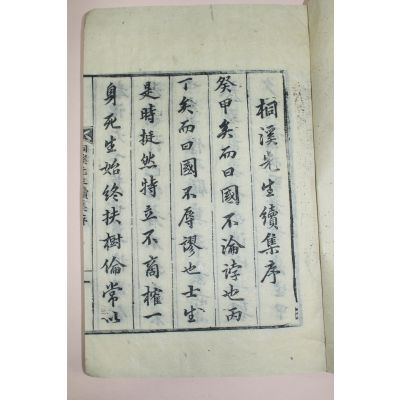 桐溪先生續集序
癸甲矣而曰國不淪誖也丙
丁矣而曰國不辱謬也士生
是時挺然特立不商搉一
身死生始終扶樹倫常以
桐溪先生續集序